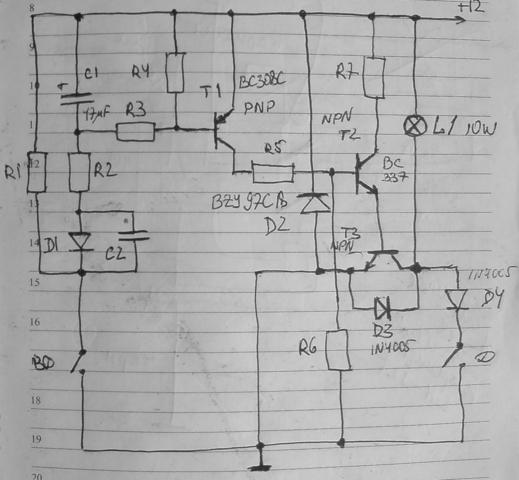 8
+12
9
C1
R4
BC308C
R7
10
T1
+
PNP
NPN
L1 10W
47µF
R3
T2
11
R5
BC
337
R1
12
R2
BZY97C
D2
13
T3
NPN
D1
14
C2
1N4005
15
D4
D3
16
1N4005
R6
BD
D
18
19
20